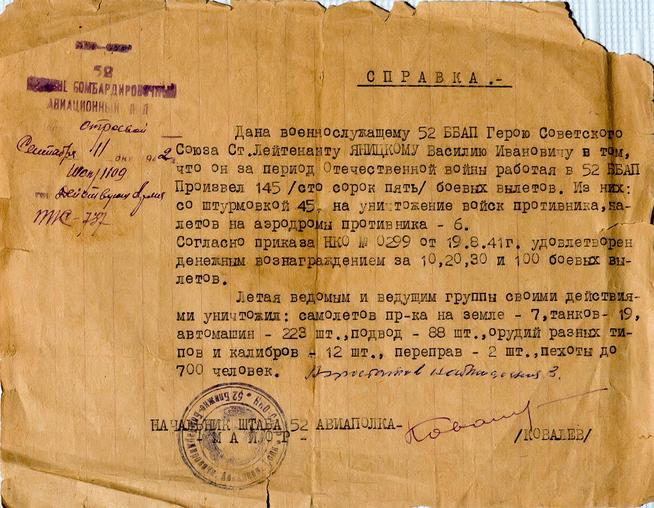 52
БОМБАРДИРОВОЧНЫЙ
АВИАЦИОННЫЙ
Сентября 11 дня 1942
№ 1109
Действующая Армия
С П Р А В К А .-
Дана военнослужащему 52 ББАП Герою Советского
Союза Ст.Лейтенанту ЯНИЦКОМУ Василию Ивановичу в том,
что он за период Отечественной войны работая в 52 ББАП
Произвел 145 /сто сорок пять/ боевых вылетов. Из них:
со штурмовкой 45, на уничтожение войск противника, на-
летов на аэродромы противника - 6.
Согласно приказа НКО № 0299 от 19.8.41г. удовлетворен
денежным вознаграждением за 10,20,30 и 100 боевых вы-
летов.
Летая ведомым и ведущим группы своими действия-
ми уничтожил: самолетов пр-ка на земле - 7, танков- 19,
автомашин - 223 шт., подвод - 88 шт., орудий разных ти-
пов и калибров - 12 шт., переправ - 2 шт., пехоты до
700 человек. Аэростатов наблюдения 3.
НАЧАЛЬНИК ШТАБА 52 АВИАПОЛКА-
- М А Й О Р -
/КОВАЛЕВ/